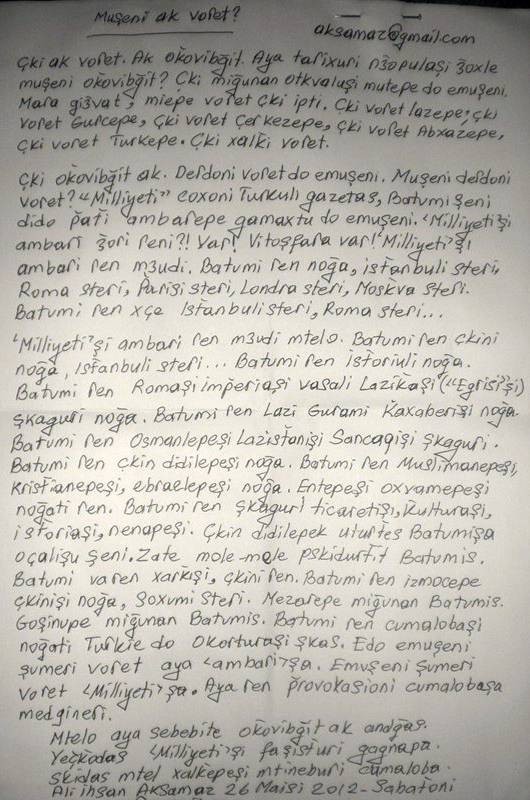 Muşeni ak voret?
aksamaz@gmail.com
Çki ak voret. Ak okovibğit. Aya tarixuri nʒopulaşi ʒoxle
muşeni okovibğit? Çki miğunan otkvaluşi mutepe do emuşeni.
Mara giʒvat, miepe voret çki ipti. Çki voret lazepe; çki
voret Gurcepe, çki voret Çerkezepe, çki voret Abxazepe,
çki voret Turkepe. Çki xalki voret.
Çki okovibğit ak. Derdoni voret do emuşeni. Muşeni derdoni
voret? "Milliyeti" coxoni Turkuli gazetas, Batumi şeni
dido pati ambarepe gamaxtu do emuşeni. 'Milliyeti'şi
ambari ʒori reni?! Var! Vitoşfara var! 'Milliyeti'şi
ambari ren mʒudi. Batumi ren noğa, istanbuli steri,
Roma steri, Parisi steri, Londra steri, Moskva steri.
Batumi ren xçe Istanbuli steri, Roma steri...
'Milliyeti'şi ambari ren mʒudi mtelo. Batumi ren çkini
noğa, Istanbuli steri... Batumi ren istoriuli noğa.
Batumi ren Romaşi imperiaşi vasali Lazikaşi ("Egrisi"şi)
şkaguri noğa. Batumi ren Lazi Gurami Kaxaberişi noğa.
Batumi ren Osmanlepeşi Lazistanişi Sancağişi şkaguri.
Batumi ren çkin didilepeşi noğa. Batumi ren Muslimanepeşi,
kristianepeşi, ebraelepeşi noğa. Entepeşi oxvamepeşi
noğati ren. Batumi ren şkaguri ticaretişi, kulturaşi,
istoriaşi, nenapeşi. Çkin didilepek ulurtes Batumişa
oçalişu şeni. Zate mole-mole pskidurtit Batumis.
Batumi varen xarkişi, çkini ren. Batumi ren izmocepe
çkinişi noğa, Soxumi steri. Mezarepe miğunan Batumis.
Goşinupe miğunan Batumis. Batumi ren cumalobaşi
noğati Turkie do Okorturaşi şkas. Edo emuşeni
şumeri voret aya 'ambari'şa. Emuşeni şumeri
voret 'Milliyeti'şa. Aya ren provokasioni cumalobaşa
medgineri.
Mtelo aya sebebite okovibğit ak andğas.
Yeçkodas 'Milliyeti'şi faşisturi gagnapa.
Skidas mtel xalkepeşi mtineburi cumaloba.
Ali ihsan Aksamaz 26 Maisi 2012- Sabatoni